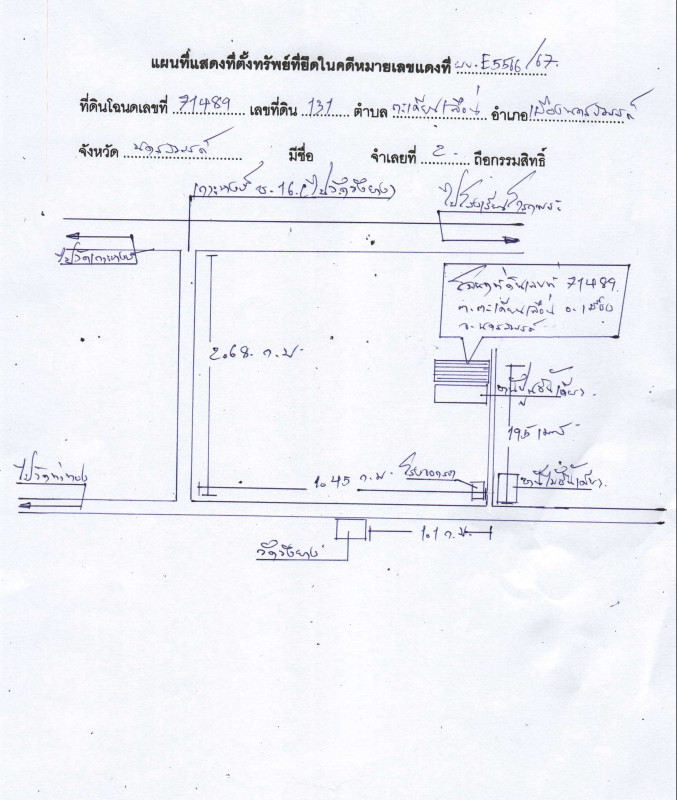 แผนที่แสดงที่ตั้งทรัพย์ที่ยึดในคดีหมายเลขแดงที่ ผบ.E5566/67
ที่ดินโฉนดเลขที่ 71489 เลขที่ดิน 131 ตำบล ตะเคียนเลื่อน อำเภอ เมืองนครสวรรค์
จังหวัด นครสวรรค์ มีชื่อ จำเลยที่ 2 ถือกรรมสิทธิ์
เกาะหงษ์ ซ.16 (ไปวัดวังยาง)
ไปโรงเรียน
ไปวัดเกาะหงษ์
โฉนดที่ดินเลขที่ 71489
ต.ตะเคียนเลื่อน อ.เมือง
จ.นครสวรรค์
2.68 ก.ม.
บ้านปูนชั้นเดียว
195 เมตร
ไปวัดท่าทอง
1.45 ก.ม.
บ้านไม้ชั้นเดียว
1.1 ก.ม.
วัดวังยาง